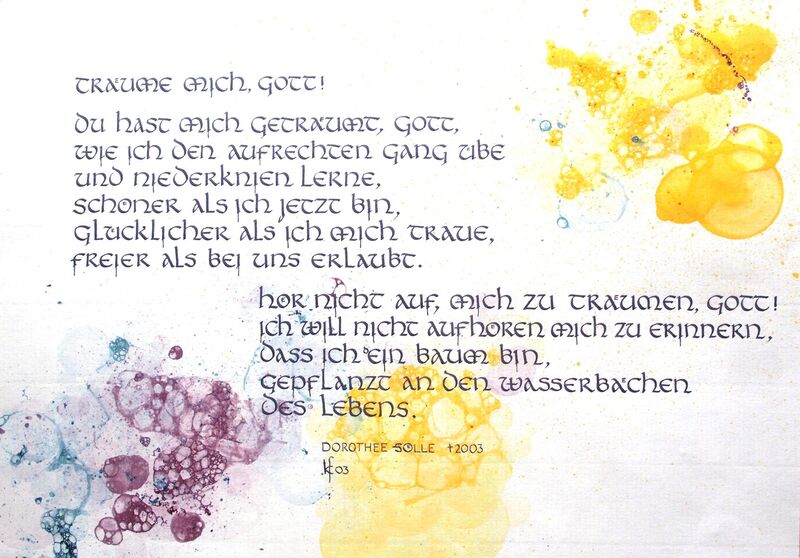 TRÄUME MICH, GOTT!
DU HAST MICH GETRÄUMT, GOTT,
WIE ICH DEN AUFRECHTEN GANG ÜBE
UND NIEDERKNIEN LERNE,
SCHÖNER ALS ICH JETZT BIN,
GLÜCKLICHER ALS ICH MICH TRAUE,
FREIER ALS BEI UNS ERLAUBT.
HÖR NICHT AUF, MICH ZU TRÄUMEN, GOTT!
ICH WILL NICHT AUFHÖREN MICH ZU ERINNERN,
DASS ICH EIN BAUM BIN,
GEPFLANZT AN DEN WASSERBÄCHEN
DES LEBENS.
DOROTHEE SÖLLE †2003
03